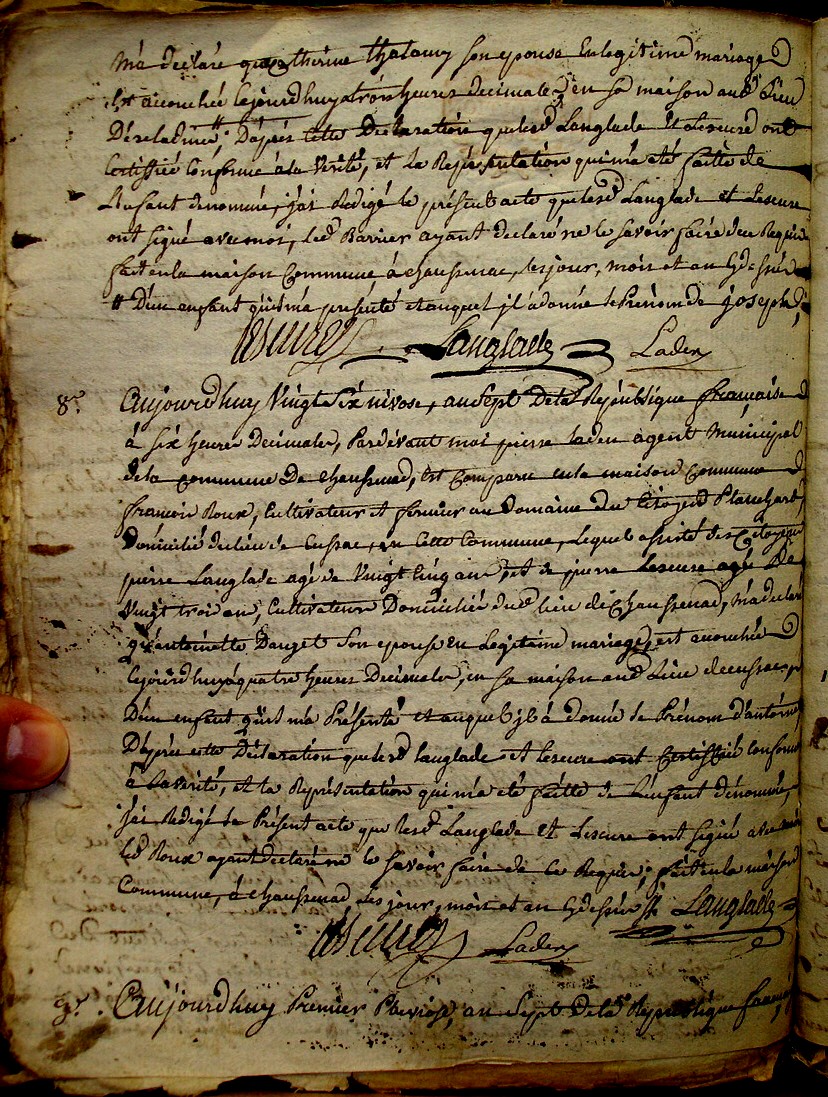 m'a declaré que catherine thalamy son epouse en legitime mariage
Est accouchée le jourd'huy a trois heures decimales, en sa maison aud. Lieu
D'après cette Declaration que lesd. Langlade et Lescure ont
Certiffié Conforme à la verité, et la Représentation qui m'a eté faitte de
L'enfant denommé, j'ai Redigé le présent acte que lesd. Langlade et Lescure
ont signé avec moi, led. Barrier ayant declaré ne le savoir faire de ce Requis
fait en la maison Commune à chaussenac, les jour, mois et an cy dessus
# D'un enfant qu'il m'a présenté et auquel jl a donné le Prénom de joseph
Lescure Langlade Laden
8e. aujourd'huy Vingt Six nivose, an Sept De la République française
à six heures Decimales, Pardévant moi pierre laden agent Municipal
de la commune De chaussenac, Est Comparu en la maison Commune
françois Roux, Cultivateur et fermier au Domaine du Citoyen Planchard,
Domicilié du lieu de Cussac, en Cette Commune, Lequel assisté des Citoyens
pierre Langlade agé de Vingt Cinq ans, et de pierre Lescure agé De
Vingt trois ans, Cultivateurs Domiciliés dud. lieu de Chaussenac, m'a declaré
qu'antoinette Dauget son epouse en Legitime mariage, est accouchée
le jourd'huy a quatre heures Decimales, en sa maison aud. Lieu de cussac,
D'un enfant qu'il m'a Présenté et auquel jl a donné le Prénom d'antoine,
D'après cette Déclaration que lesd. langlade et lescure ont Certiffié Conforme
à La verité, et la Représentation qui m'a eté faitte de L'enfant dénommé,
j'ai Redigé le Présent acte que Lesd. Langlade et Lescure ont signé avec moi
led. Roux ayant declaré ne le savoir faire de ce Requis, fait en la maison
Commune, à chaussenac les jour, mois et an cy dessus Langlade
Lescure Laden
9e. aujourd'huy Premier Pluviose, an Sept de la République